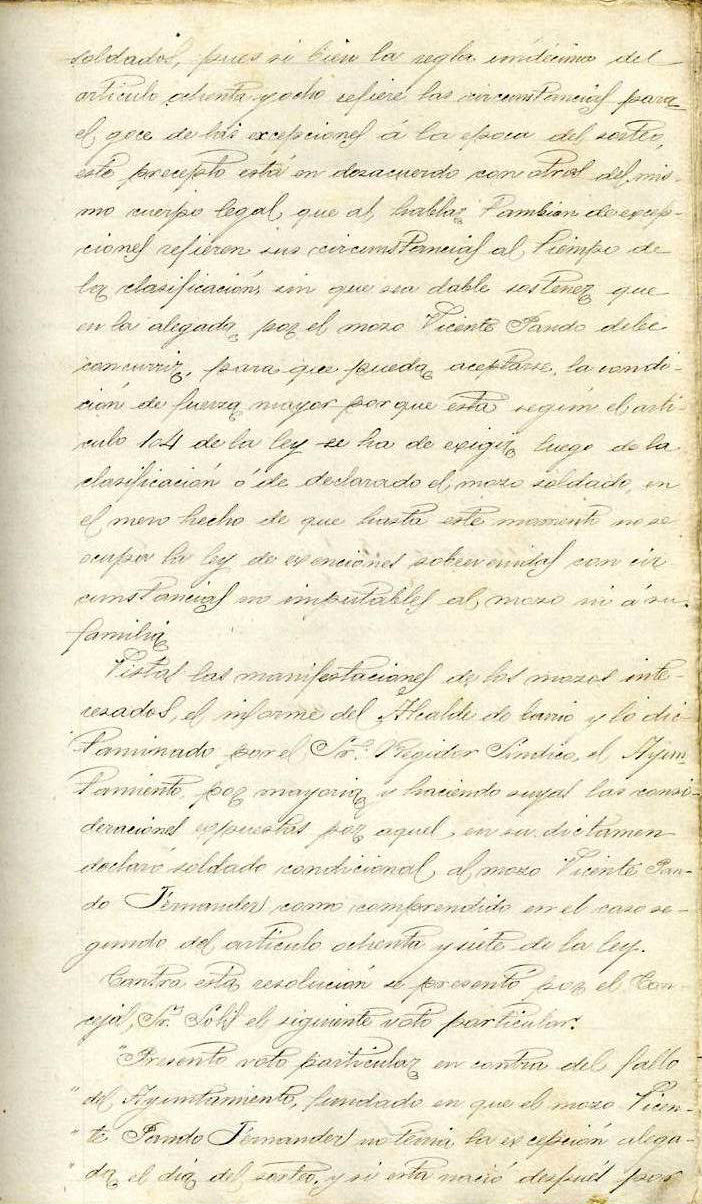 soldados, pues si bien la regla undécima del
artículo ochenta y ocho refiere las circunstancias para
el goce de las excepciones á la epoca del sorteo,
este precepto está en desacuerdo con otros del mis-
mo cuerpo legal, que al hablar tambien de excep-
ciones refieren sus circunstancias al tiempo de
la clasificación, sin que sea dable sostener que
en la alegada por el mozo Vicente Pando debe
concurrir, para que pueda aceptarse, la condi-
ción de fuerza mayor porque esta según el artí-
culo 104 de la ley se ha de exigir luego de la
clasificación ó de declarado el mozo soldado, en
el mero hecho de que hasta este momento no se
ocupa la ley de exenciones sobrevenidas con cir-
cunstancias no imputables al mozo ni á su
familia
Vistas las manifestaciones de los mozos inte-
resados, el informe del Alcalde de bario y lo dic-
taminado por el Sr. Regidor Síndico, el Ayun-
tamiento por mayoria y haciendo suyas las consi-
deraciones expuestas por aquel en su dictamen
declaró soldado condicional al mozo Vicente Pan-
do Fernandez como comprendido en el caso se-
gundo del artículo ochenta y siete de la ley.
Contra esta resolución se presentó por el Con-
cejal Sr. Solis el siguiente voto particular:
"Presento voto particular en contra del fallo
" del Ayuntamiento, fundado en que el mozo Vicen-
" te Pando Fernandez no tenia la excepción alega-
" da el dia del sorteo, y si esta nació después por